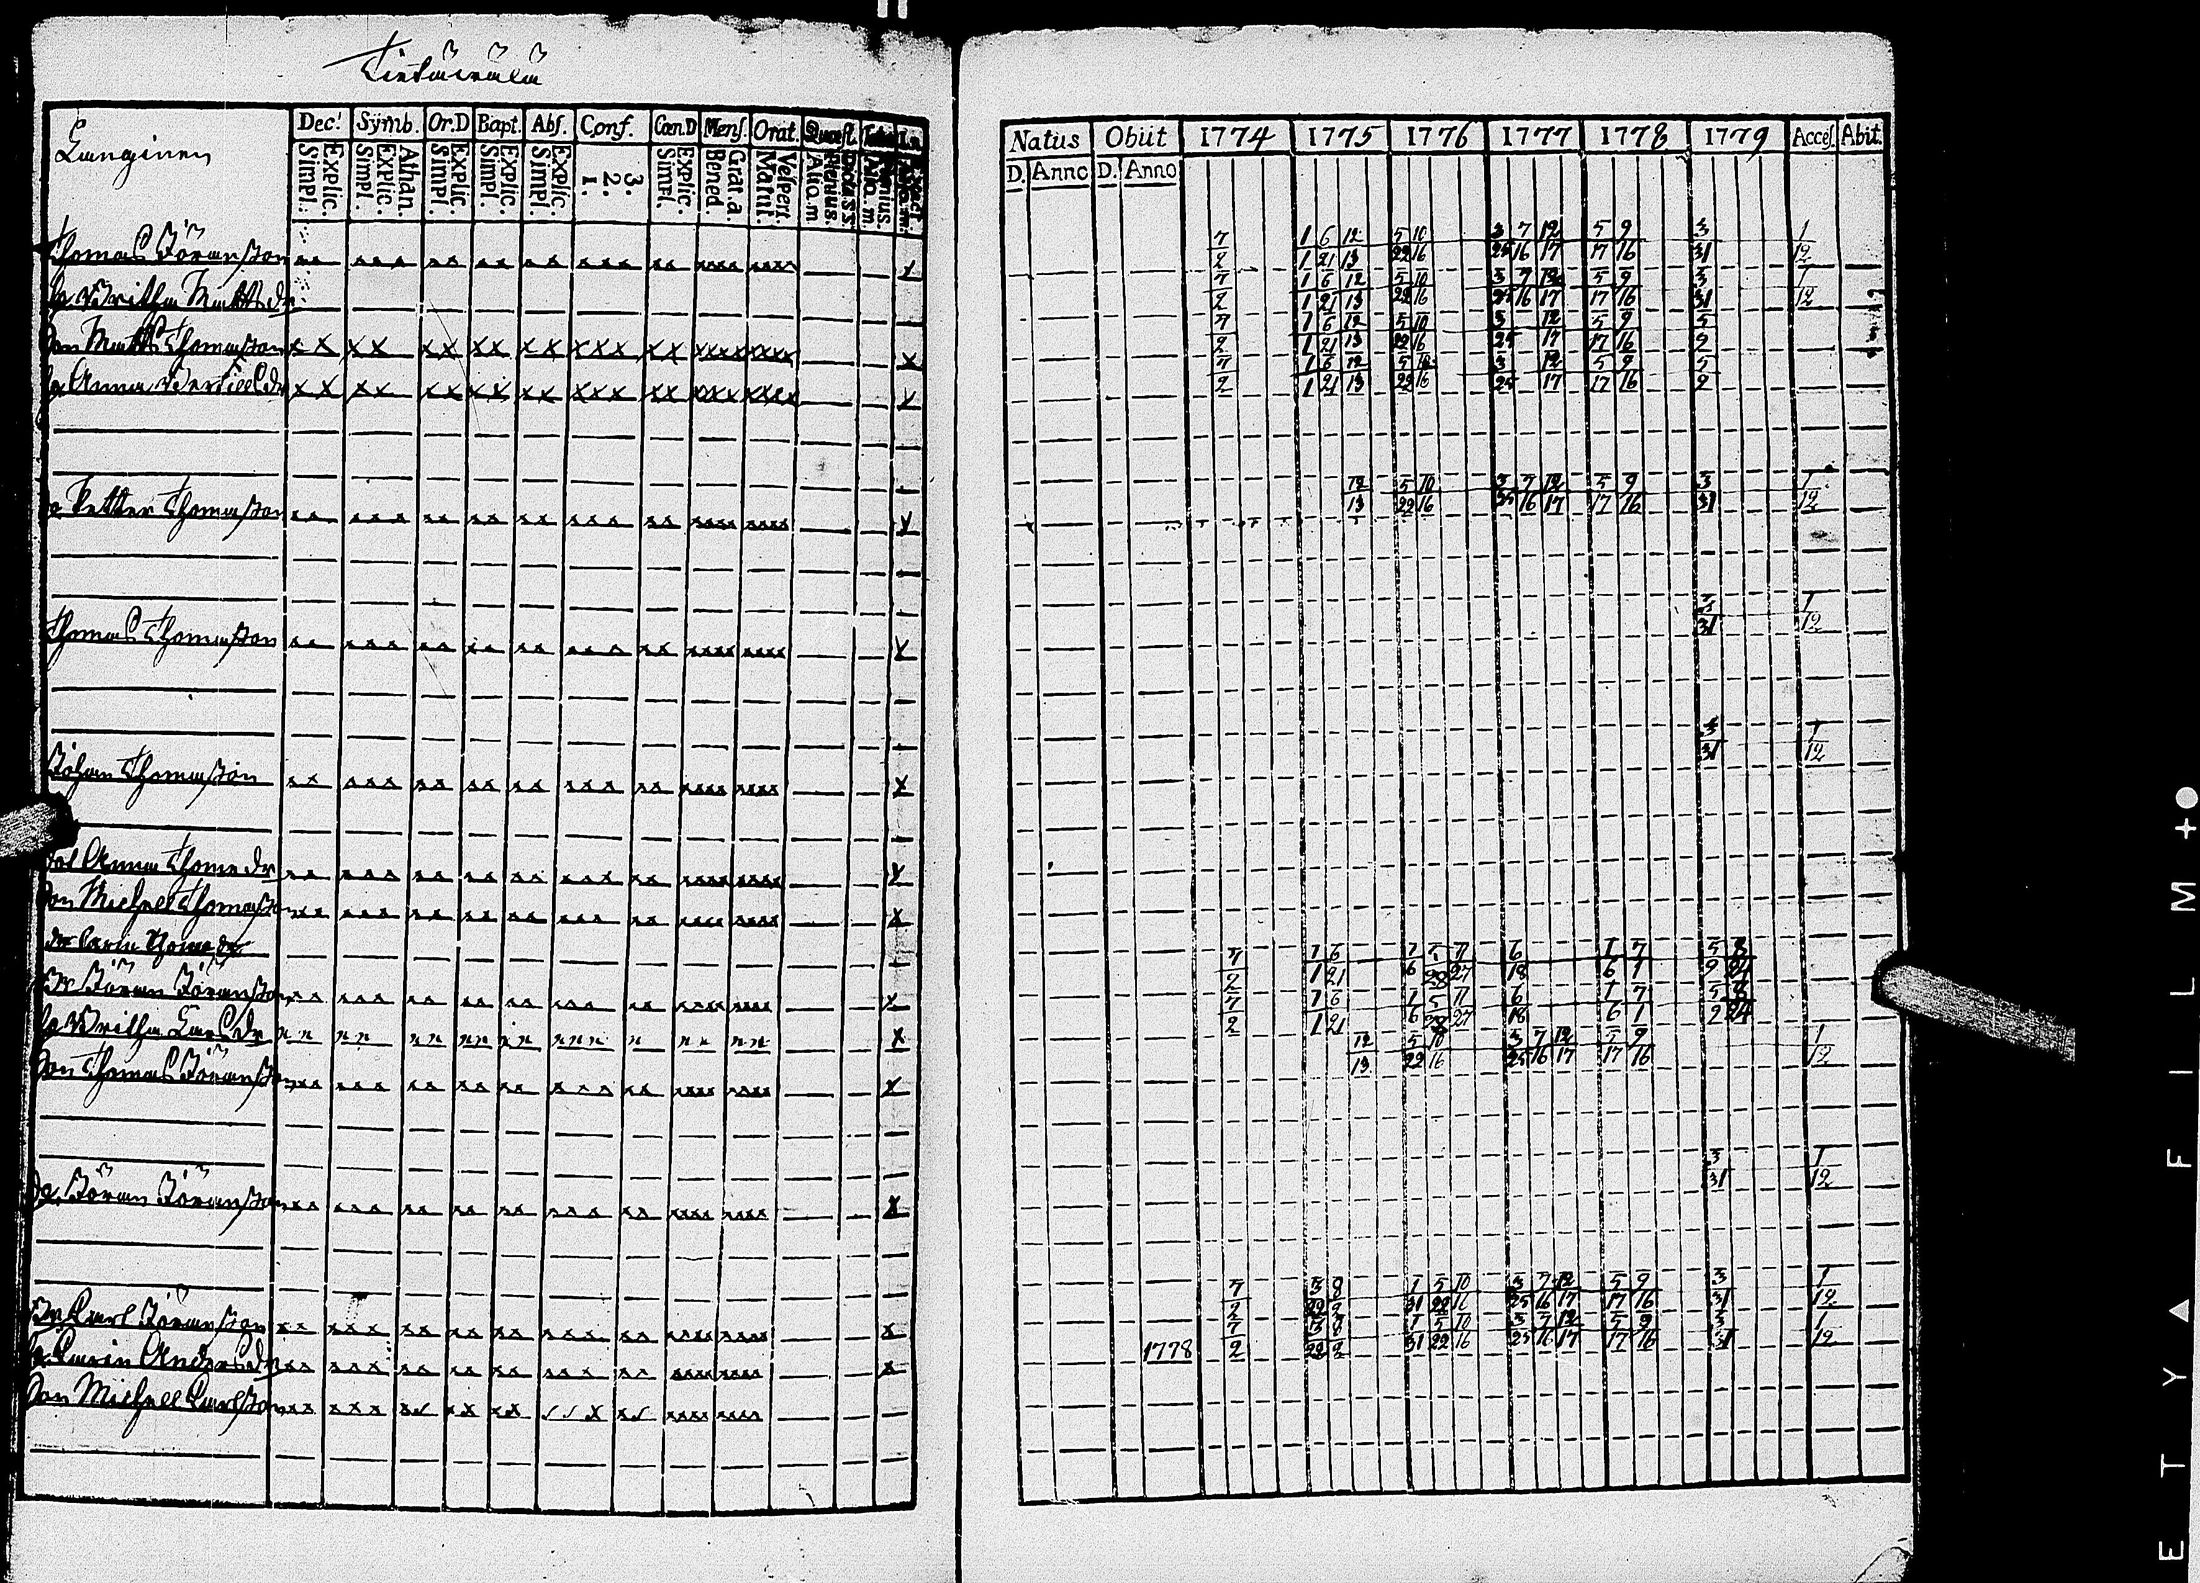 Tietäwälä
Langinen
Dec. Symb. Or.D Bapt. Abs. Conf. Cœn.D Mens. Orat. Quæst.
Explic. Simpl. Athan. Explic. Simpl. Explic. Simpl. Explic. Simpl. Explic. Simpl. 3. 2. 1. Explic. Simpl. Grat.a. Bened. Vespert. Matut.
Thomas Jöransson
h. Britha Matts dr
Son Matts Thomasson
h. Anna Bertills dr
Petter Thomasson
Thomas Thomasson
Johan Thomasson
dot Anna Thome dr
Son Michael Thomasson
dr Carin Thome dr
Br Jöran Jöransson
h. Britha Lars dr
Son Thomas Jöransson
Jöran Jöransson
Br Carl Jöransson
h. Carin Anders dr
Son Michael Carlsson
Natus Obiit 1774 1775 1776 1777 1778 1779 Acces. Abit.
D. Anno D. Anno
7 1 6 12 5 10 3 7 12 5 9 3 1
2 1 21 13 22 16 25 16 17 17 16 31 12
7 1 6 12 5 10 3 7 12 5 9 3 1
2 1 21 13 22 16 25 16 17 17 16 31 12
7 1 6 12 5 10 3 12 5 9 5
2 1 21 13 22 16 25 17 17 16 9
7 1 6 12 5 10 3 12 5 9 5
2 1 21 13 22 16 25 17 17 16 9
12 5 10 3 7 12 5 9 3 1
13 22 16 25 16 17 17 16 31 12
3 1
31 12
3 1
31 12
7 1 6 1 5 11 6 1 7 5 8
2 1 21 6 28 27 18 6 1 9 24
7 1 6 1 5 11 6 1 7 5 8
2 1 21 6 28 27 18 6 1 9 24
12 5 10 3 7 12 5 9 1
13 22 16 25 16 17 17 16 12
3 1
31 12
7 3 8 1 5 10 3 7 12 5 9 3 1
2 22 2 31 22 16 25 16 17 17 16 31 12
7 3 8 1 5 10 3 7 12 5 9 3 1
1778 2 22 2 31 22 16 25 16 17 17 16 31 12
ETYAFILM